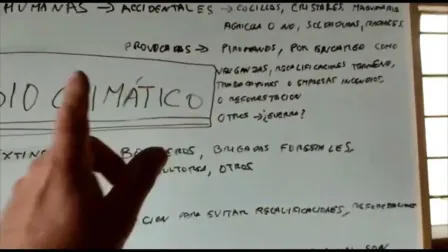 HUMANAS → ACCIDENTALES → COLILLOS, CRISTALES, MAQUINARIA
AGRICOLA O NO, SOLDADURAS, RADIALES
PROVOCADOS → PIROMANOS, POR ENCARGO COMO
VENGANZAS, RECALIFICACIONES TERRENO,
TRABAJADORAS O EMPRESAS INCENDIOS
O REFORESTACION
OTROS → ¿GUERRA?
DIO CLIMÁTICO
EXTIN BOMBEROS, BRIGADAS FORESTALES,
CULTORES, OTROS
CION PARA EVITAR RECALIFICACIONES, REFORESTACIONES